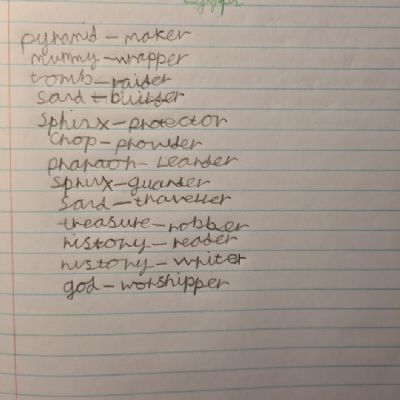 Egypt
pyramid – maker
mummy – wrapper
tomb – raider
sand – builder
Sphinx – protector
Chop – provider
pharaoh – Leander
Sphinx – guarder
Sand – traveller
treasure – robber
history – reader
history – writer
god – worshipper